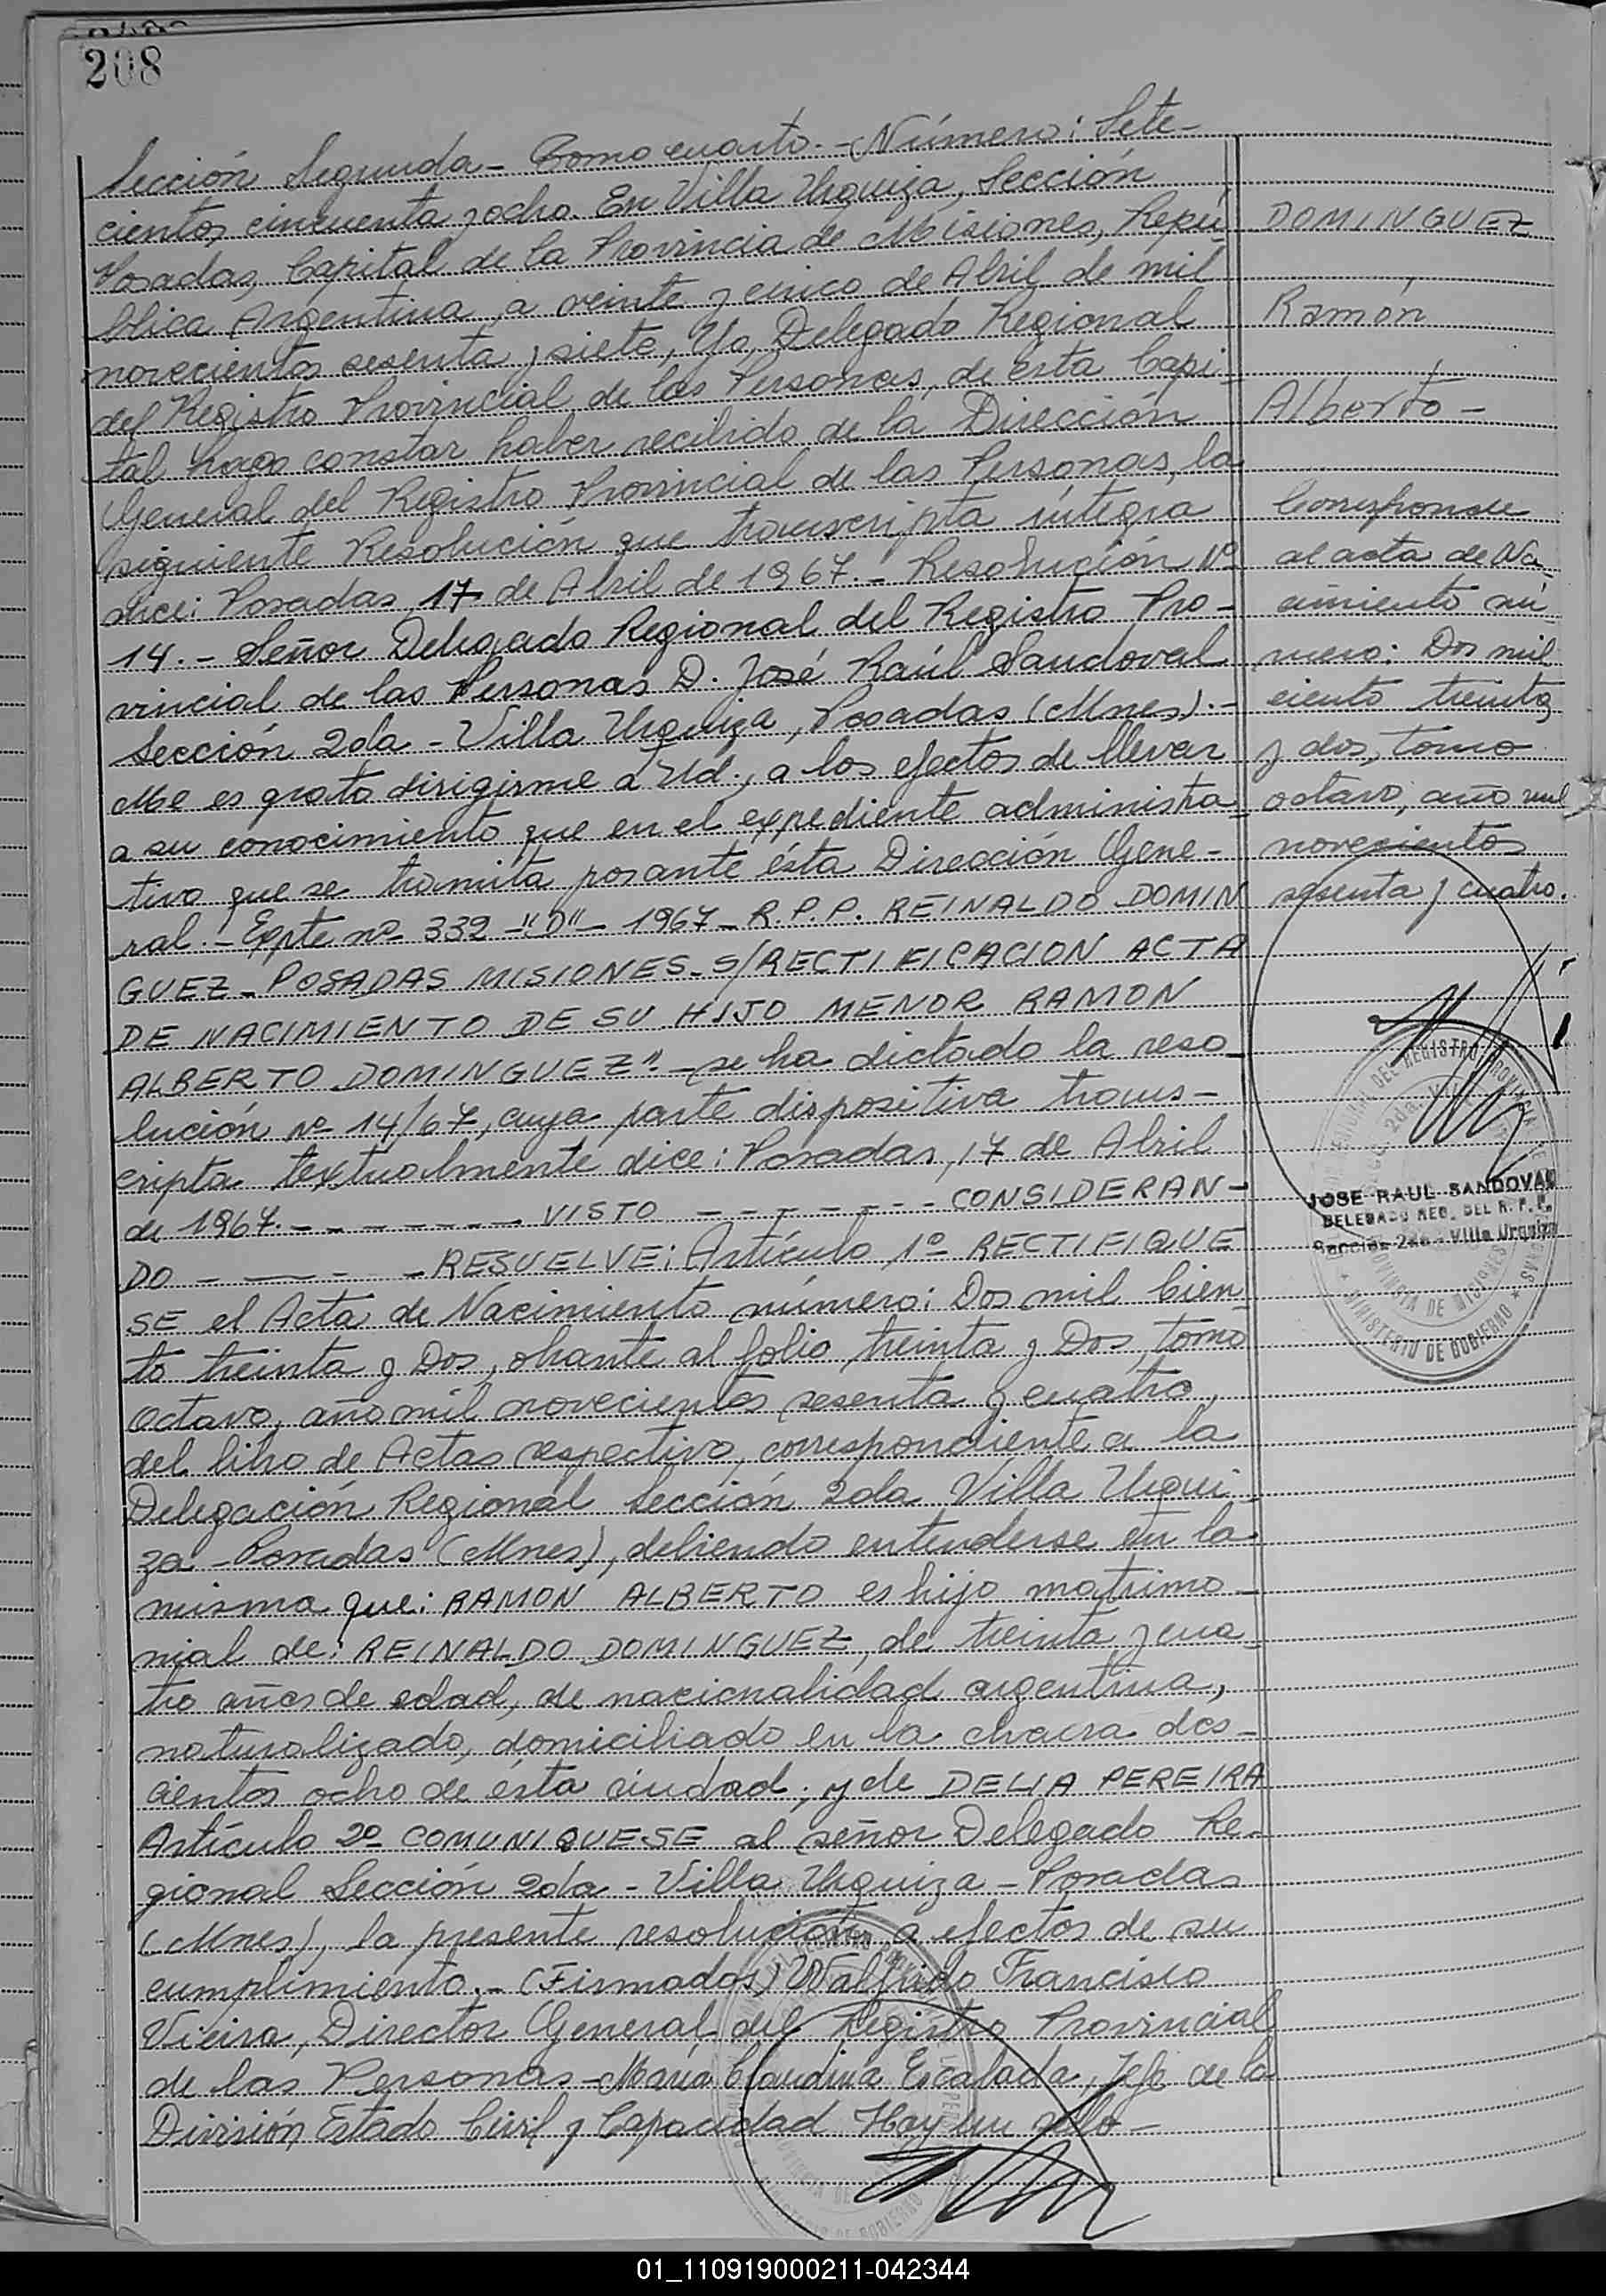 208
Sección Segunda - Tomo cuarto. - Número: Sete-
cientos cincuenta y ocho. En Villa Urquiza, Sección
Posadas, Capital de la Provincia de Misiones, Repú-
blica Argentina, a veinte y cinco de Abril de mil
novecientos sesenta y siete, Yo, Delegado Regional
del Registro Provincial de las Personas, de esta Capi-
tal hago constar haber recibido de la Dirección
General del Registro Provincial de las Personas, la
siguiente Resolución que transcripta íntegra
dice: Posadas, 17 de Abril de 1967.- Resolución Nº
14.- Señor Delegado Regional del Registro Pro-
vincial de las Personas D. José Raúl Sandoval
Sección 2da - Villa Urquiza, Posadas (Mnes).-
Me es grato dirigirme a Ud., a los efectos de llevar
a su conocimiento, que en el expediente administra-
tivo que se tramita por ante ésta Dirección Gene-
ral.- Expte nº 332 -"D"- 1967 - R.P.P. REINALDO DOMIN
GUEZ - POSADAS MISIONES - S/RECTIFICACION ACTA
DE NACIMIENTO DE SU HIJO MENOR RAMON
ALBERTO DOMINGUEZ". - se ha dictado la reso-
lución nº 14/67, cuya parte dispositiva trans-
cripta textualmente dice: Posadas, 17 de Abril
de 1967. - - - - - - - VISTO - - - - - - - CONSIDERAN-
DO - - - - - RESUELVE: Artículo 1º RECTIFIQUE
SE el Acta de Nacimiento número: Dos mil Cien-
to treinta y Dos, obrante al folio treinta y Dos, tomo
octavo, año mil novecientos sesenta y cuatro,
del libro de Actas respectivo, correspondiente a la
Delegación Regional Sección 2da Villa Urqui-
za - Posadas (Mnes), debiendo entenderse en la
misma que: RAMON ALBERTO es hijo matrimo-
nial de: REINALDO DOMINGUEZ, de treinta y cua-
tro años de edad, de nacionalidad argentina,
naturalizado, domiciliado en la chacra dos-
cientos ocho de ésta ciudad; y de DELIA PEREIRA
Artículo 2º COMUNIQUESE al señor Delegado Re-
gional Sección 2da - Villa Urquiza - Posadas
(Mnes), la presente resolución a efectos de su
cumplimiento.- (Firmados) Walfrido Francisco
Vieira, Director General del Registro Provincial
de las Personas - María Claudina Escalada, Jefe de la
División Estado Civil y Capacidad Hay un sello -
DOMINGUEZ
Ramón
Alberto -
Corresponde
al acta de Na-
cimiento nú-
mero: Dos mil
ciento treinta
y dos, tomo
octavo, año mil
novecientos
sesenta y cuatro.
JOSE RAUL SANDOVAL
DELEGADO REG. DEL R. P. P.
Sección 2da. Villa Urquiza
MINISTERIO DE GOBIERNO
01_110919000211-042344